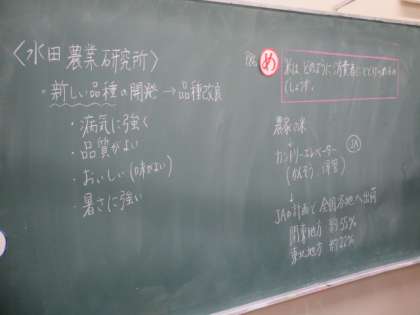 〈水田農業研究所〉
・新しい品種の開発→品種改良
・病気に強く
・品質がよい
・おいしい(味がよい)
・暑さに強い
め
米は どのように 消費者に
でしょう。
農家の米
↓
カントリーエレベーター JA
(かんそう、
↓
JAの計画で 全国各地へ出荷
関東地方 約55%
東北地方 約22%